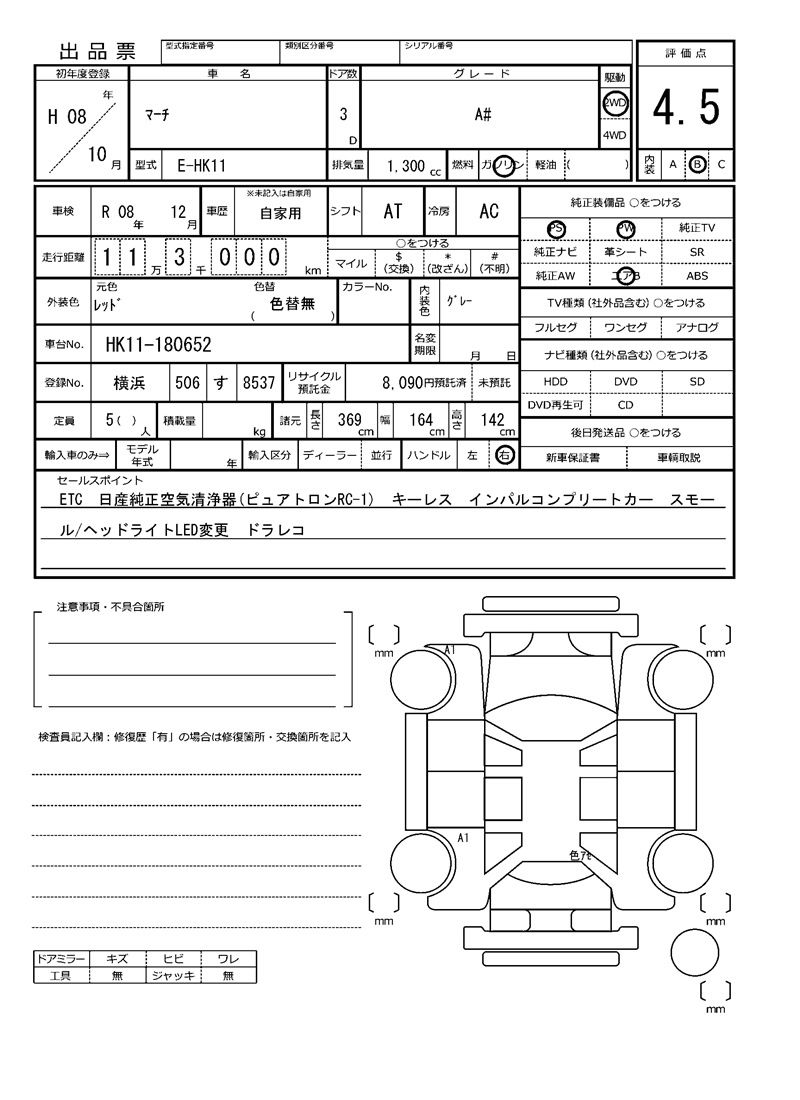 出品票 型式指定番号 類別区分番号 シリアル番号 評価点
初年度登録 車名 ドア数 グレード 駆動
H 08 年 10 月 マーチ 3 D A# 2WD 4WD 4.5
型式 E-HK11 排気量 1,300 cc 燃料 ガソリン 軽油 ( ) 内装 A B C
車検 R 08 年 12 月 車歴 ※未記入は自家用 自家用 シフト AT 冷房 AC 純正装備品 ○をつける
PS PW 純正TV
走行距離 11 万 3 千 000 km ○をつける
マイル $ (交換) * (改ざん) # (不明) 純正ナビ 革シート SR
純正AW エアB ABS
外装色 元色 レッド 色替 ( 色替無 ) カラーNo. 内装色 グレー TV種類 (社外品含む) ○をつける
フルセグ ワンセグ アナログ
車台No. HK11-180652 名変期限 月 日 ナビ種類 (社外品含む) ○をつける
登録No. 横浜 506 す 8537 リサイクル預託金 8,090円預託済 未預託 HDD DVD SD
DVD再生可 CD
定員 5( ) 人 積載量 kg 諸元 長さ 369 cm 幅 164 cm 高さ 142 cm 後日発送品 ○をつける
輸入車のみ⇒ モデル年式 年 輸入区分 ディーラー 並行 ハンドル 左 右 新車保証書 車輌取説
セールスポイント
ETC 日産純正空気清浄器(ピュアトロンRC-1) キーレス インパルコンプリートカー スモー
ル/ヘッドライトLED変更 ドラレコ
注意事項・不具合箇所
mm mm
A1
検査員記入欄：修復歴「有」の場合は修復箇所・交換箇所を記入
A1
色ｱｾ
mm mm
ドアミラー キズ ヒビ ワレ
工具 無 ジャッキ 無
mm